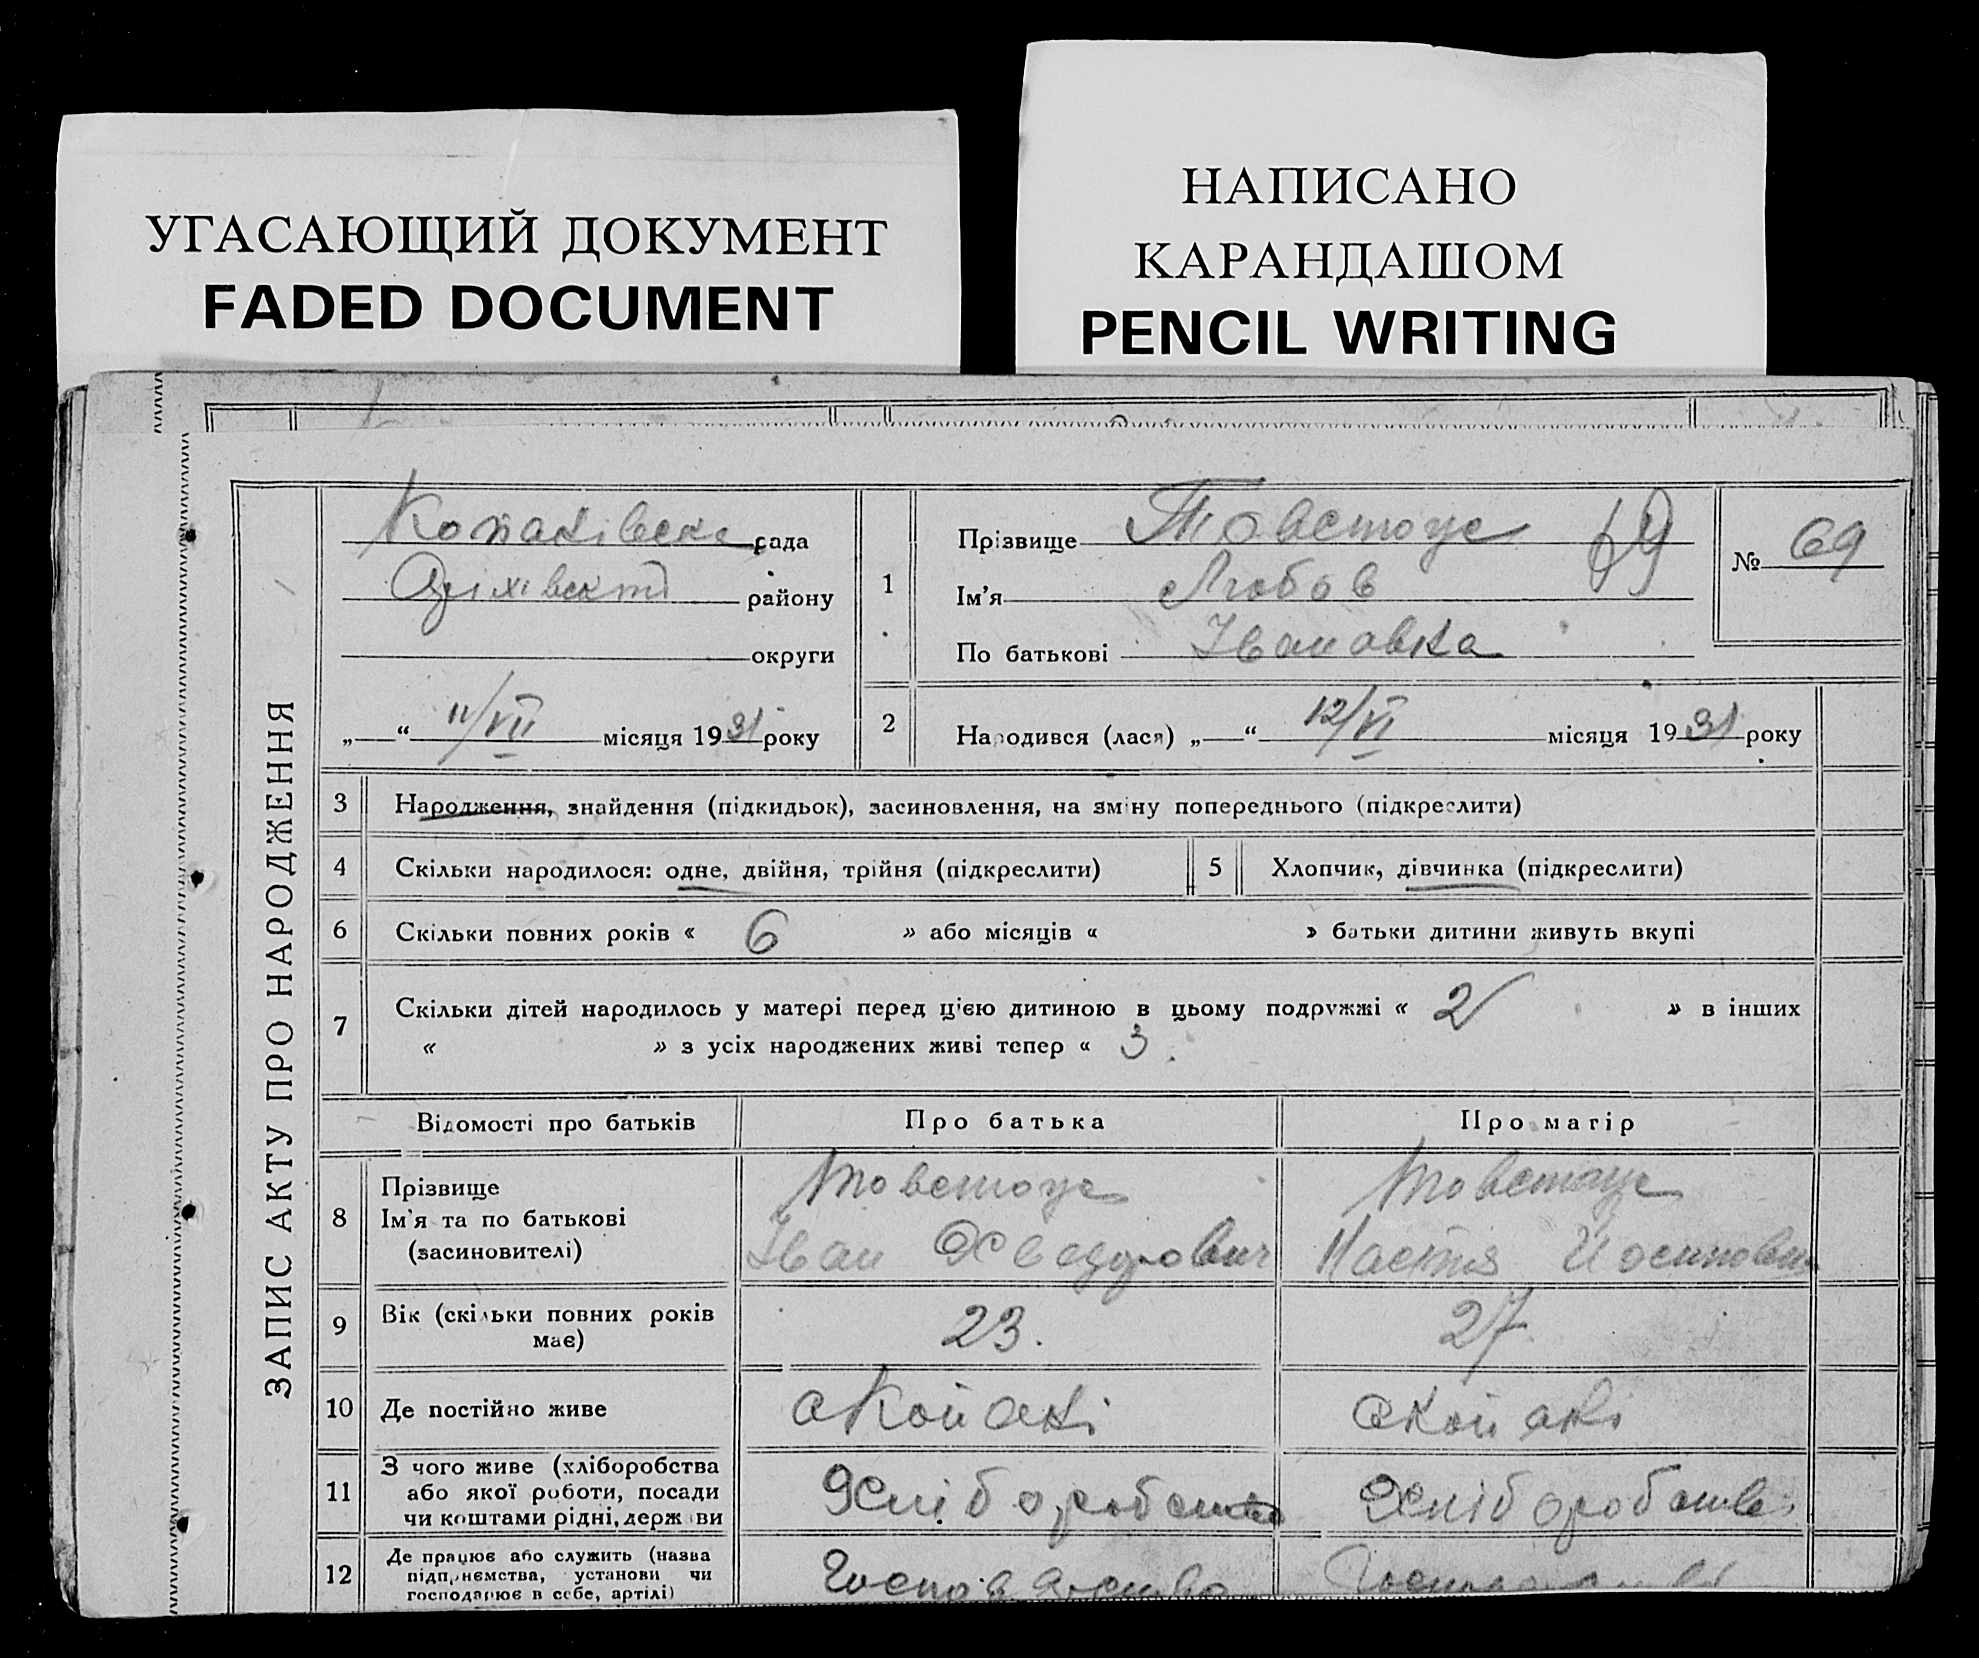 УГАСАЮЩИЙ ДОКУМЕНТ
FADED DOCUMENT
НАПИСАНО
КАРАНДАШОМ
PENCIL WRITING
ЗАПИС АКТУ ПРО НАРОДЖЕННЯ
рада
району
округи
„ “ 11/VII місяця 1931 року
1
Прізвище Товстоус 69
Ім'я Любов
По батькові Івановна
№ 69
2 Народився (лася) „ “ 12/VI місяця 1931 року
3 Народження, знайдення (підкидьок), засиновлення, на зміну попереднього (підкреслити)
4 Скільки народилося: одне, двійня, трійня (підкреслити) 5 Хлопчик, дівчинка (підкреслити)
6 Скільки повних років « 6 » або місяців « » батьки дитини живуть вкупі
7 Скільки дітей народилось у матері перед цією дитиною в цьому подружжі « 2 » в інших
« » з усіх народжених живі тепер « 3
Відомості про батьків Про батька Про матір
8 Прізвище Товстоус Товстоус
Ім'я та по батькові Іван Хведорович Настя
(засиновителі)
9 Вік (скільки повних років має) 23. 27
10 Де постійно живе
11 З чого живе (хліборобства Хліборобство Хліборобство
або якої роботи, посади
чи коштами рідні, держави
12 Де працює або служить (назва
підприємства, установи чи
господарює в себе, артілі)